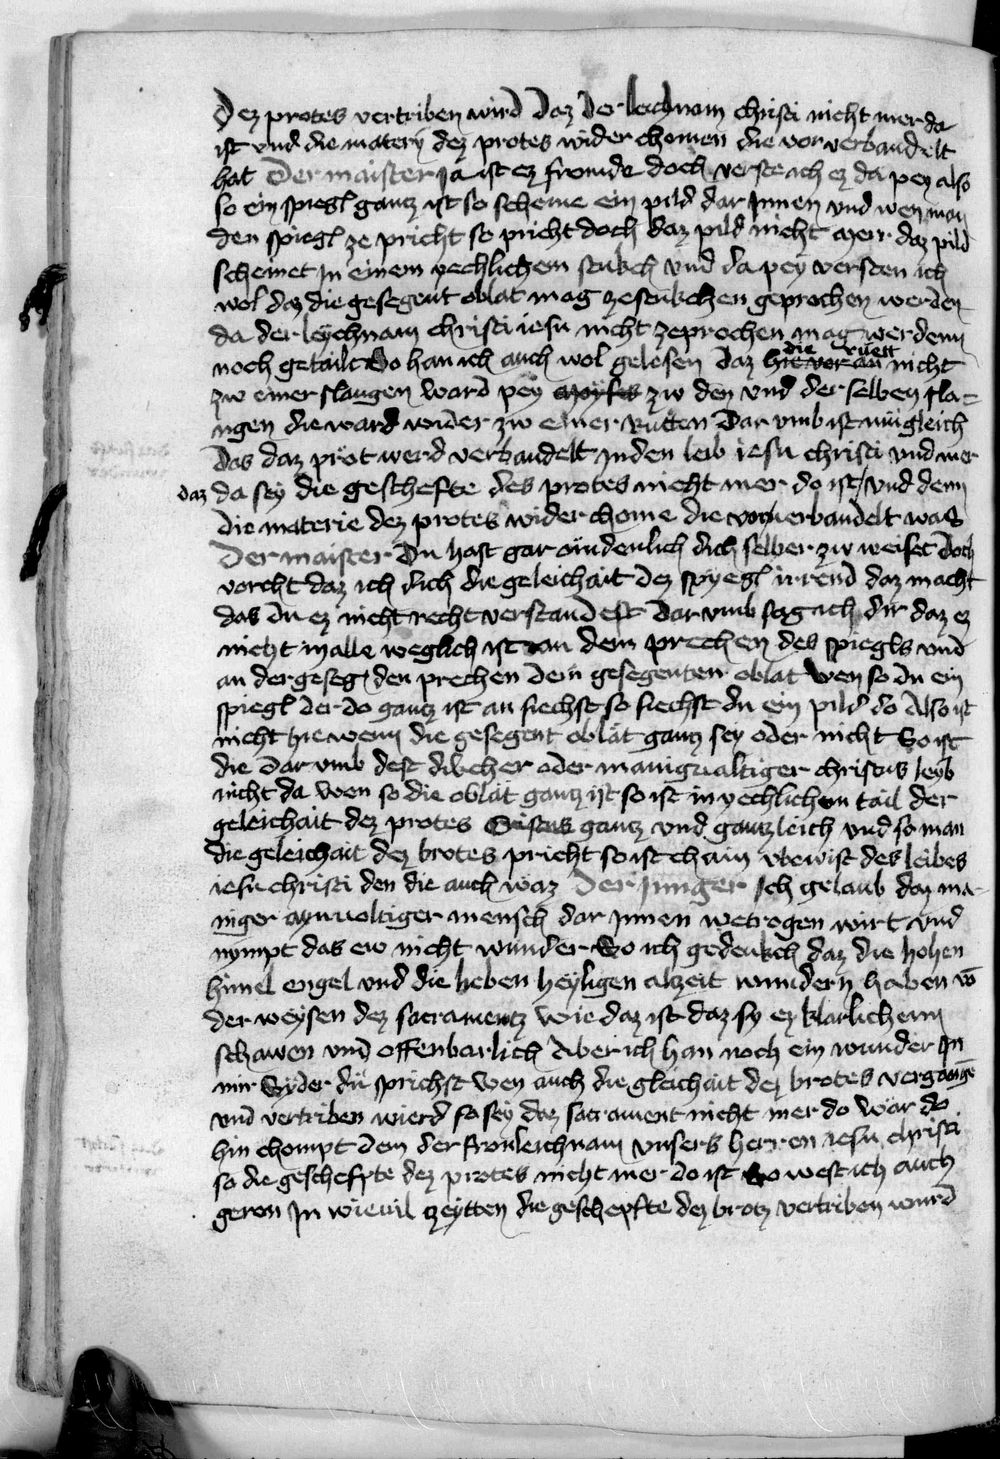 Dez protes vertriben wird daz der leichnam christi nicht mer da
ist vnd die matery dez protes wider chomen die vor verbandelt
hat Der maister Ja ist ez fromde doch versteich ez da pey also
so ein spiegl gantz ist so scheine ein pild dar Innen vnd wen man
den spiegl ze pricht so pricht doch daz pild nicht Merr daz pild
scheinet In einem yechlichem stukch vnd da pey versten ich
wol daz die gesegent oblat mag zestukchen geprochen werden
da der leychnam christi iesu nicht zeprochen mag werdenn
noch getailt So han ich auch wol gelesen daz die ruett nicht
zw einer slangen ward pey zw den vnd der selben sla-
ngen die ward wider zw einer Rutten Dar vmb ist mugleich
Das daz prot werd verbandelt Inden leib iesu christi vnd mer
daz da sey die gescheffte des protes nicht mer do ist vnd denn
die materie dez protes wider chome die vor verbandelt was
Der maister Du hast gar dich selber zw weiset doch
vorcht daz ich dich die geleichait dez spyegl irrend daz macht
das du ez nicht recht verstandest Dar vmb sag ich dir daz ez
nicht Inalle weglich ist an dem prechen des spiegls vnd
an der geseg den prechen dein gesegenten oblat Wen so du ein
spiegl der do gantz ist an siechst so siechst du ein pild do Also ist
nicht hie wenn die gesegent oblat gantz sey oder nicht So ist
die dar vmb dest oder manigualtiger christus leyb
nicht da Wen so die oblat gantz ist so ist in yechlichem tail der
geleichait dez protes Cristus gantz vnd gantzleich vnd so man
die geleichait dez brotes pricht so ist chain des leibes
iesu christi den die auch waz Der Junger Ich gelaub daz ma-
niger aynuoltiger mensch dar Innen wetrogen wirt vnd
nympt das ew nicht wunder So ich gedenkch daz die hohen
himel engel vnd die lieben heyligen alzeit wundern haben vo
der weysen dez sacramentz Wie daz ist daz sy ez klarlichenn
schawen vnd offenbarlich Aber ich han noch ein wunder In
mir Syder du sprichst Wen auch die gleichait dez brotes vergange
vnd vertriben wierd so sey daz sacrament nicht mer do War do
hin chompt dem der fronleichnam vnsers herren iesu christi
so die gescheffte dez protes nicht mer do ist So west ich auch
geren In wieuil zeytten die geschepfte dez brotz vertriben wurd